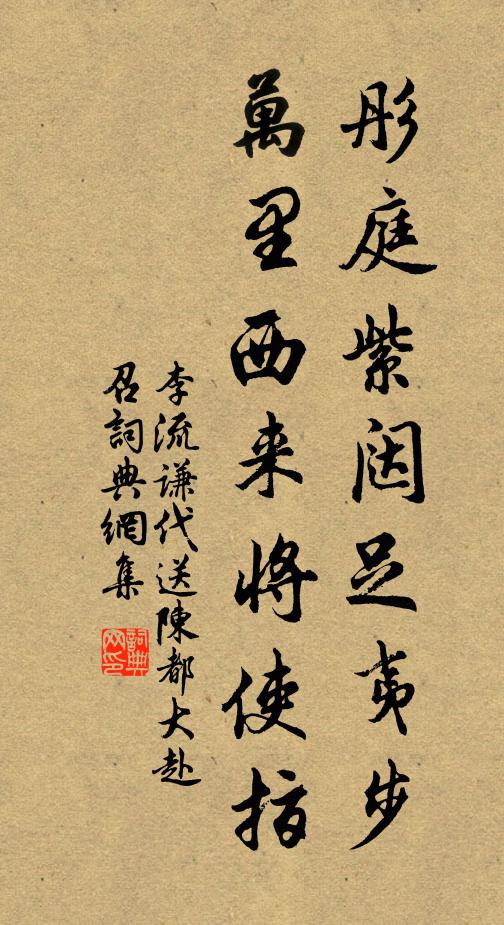 彤庭紫闼足夷步
萬里西来將使指
李流謙代送陳都大赴
召詞典網集
詞典
网印